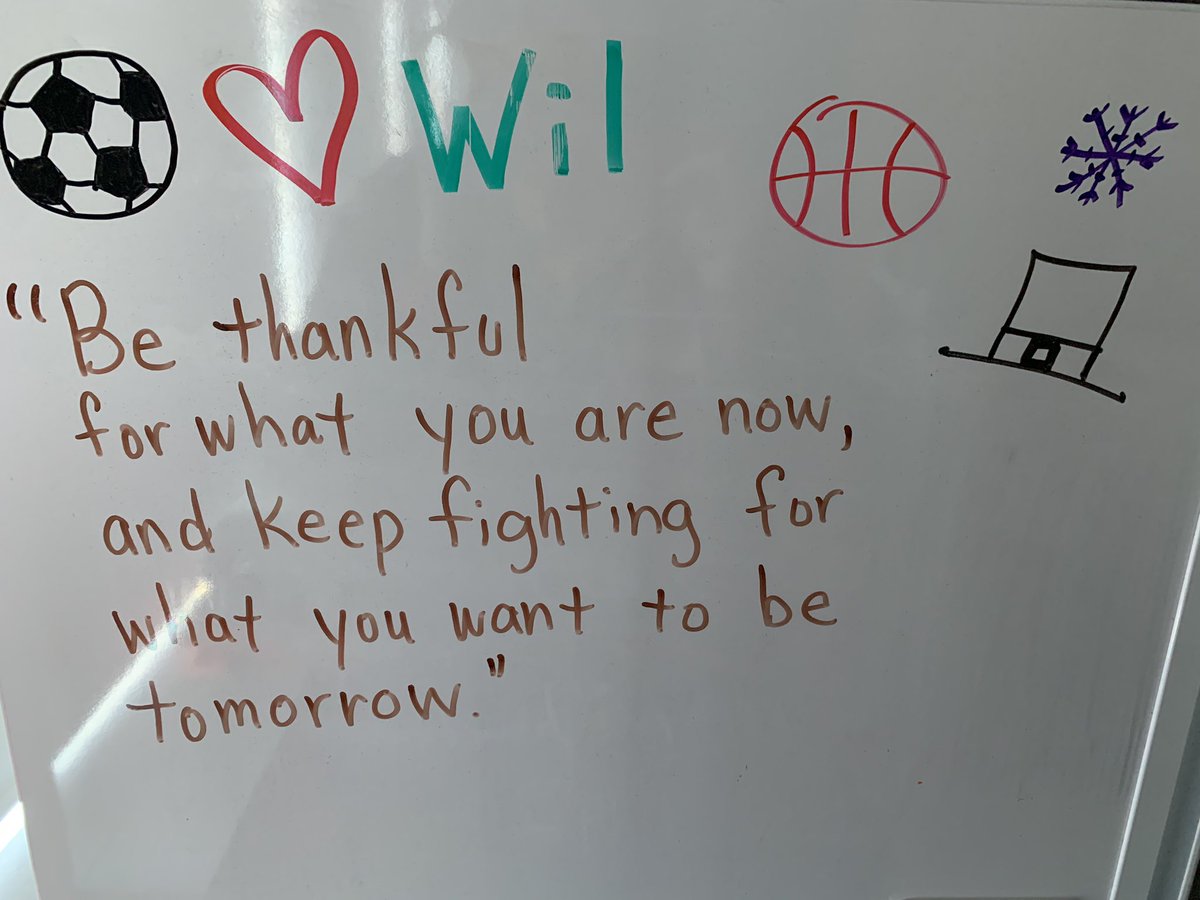 Wil
"Be thankful
for what you are now,
and keep fighting for
what you want to be
tomorrow."